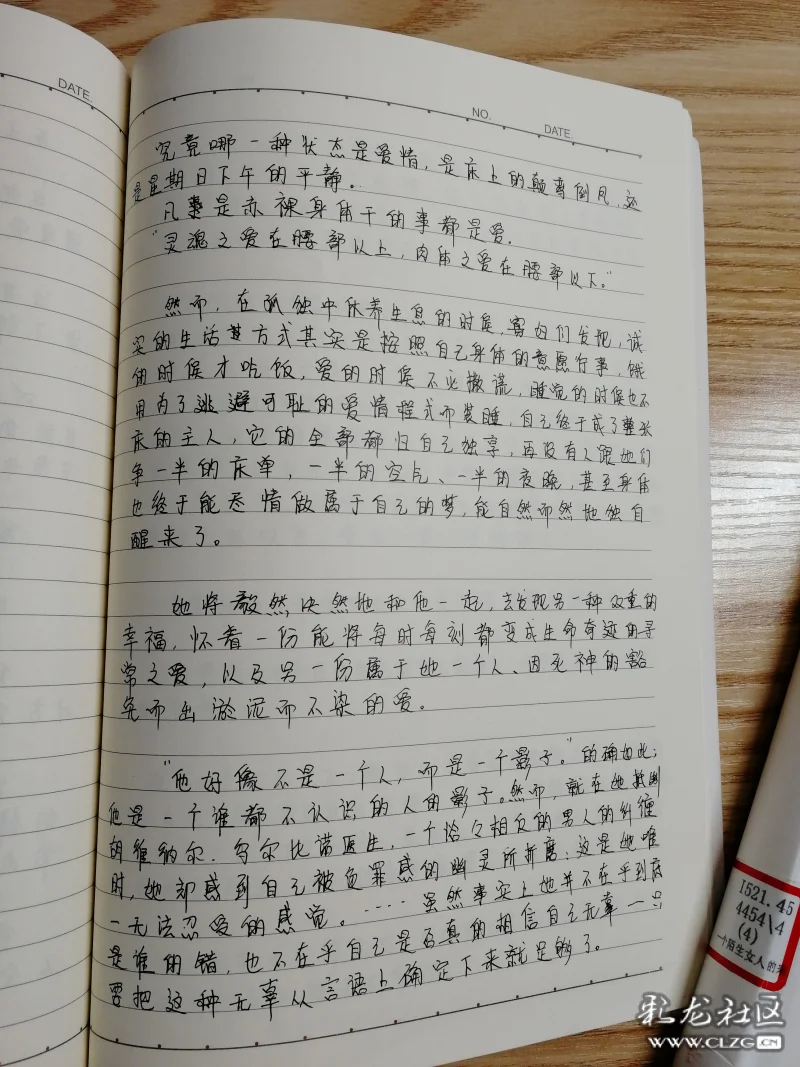 DATE.
NO.
DATE.
究竟哪一种状态是爱情,是床上的颠鸾倒凤,还
是星期日下午的平静。
凡事是赤裸身体干的事都是爱.
"灵魂之爱在腰部以上,肉体之爱在腰部以下。"
然而,在孤独中休养生息的时候,寡妇们发现,诚
实的生活方式其实是按照自己身体的意愿行事,饿
的时候才吃饭,爱的时候不必撒谎,睡觉的时候也不
用为了逃避可耻的爱情程式而装睡,自己终于成了整张
床的主人,它的全部都归自己独享,再没有人跟她们
争一半的床单,一半的空气、一半的夜晚,甚至身体
也终于能尽情做属于自己的梦,能自然而然地独自
醒来了。
她将毅然决然地和他一起,去发现另一种双重的
幸福,怀着一份能将每时每刻都变成生命奇迹的寻
常之爱,以及另一份属于她一个人、因死神的豁
免而出淤泥而不染的爱。
"他好像不是一个人,而是一个影子。"的确如此;
他是一个谁都不认识的人的影子。然而,就在她
胡维纳尔.乌尔比诺医生,一个恰々相反的男人的纠缠
时,她却感到自己被负罪感的幽灵所折磨:这是她唯
一无法忍爱的感觉。……虽然事实上她并不在乎到底
是谁的错,也不在乎自己是否真的相信自己无辜一只
要把这种无辜从言语上确定下来就足够了。
I521.45
4454\4
(4)
一个陌生女人的来
彩龙社区
WWW.CLZG.CN